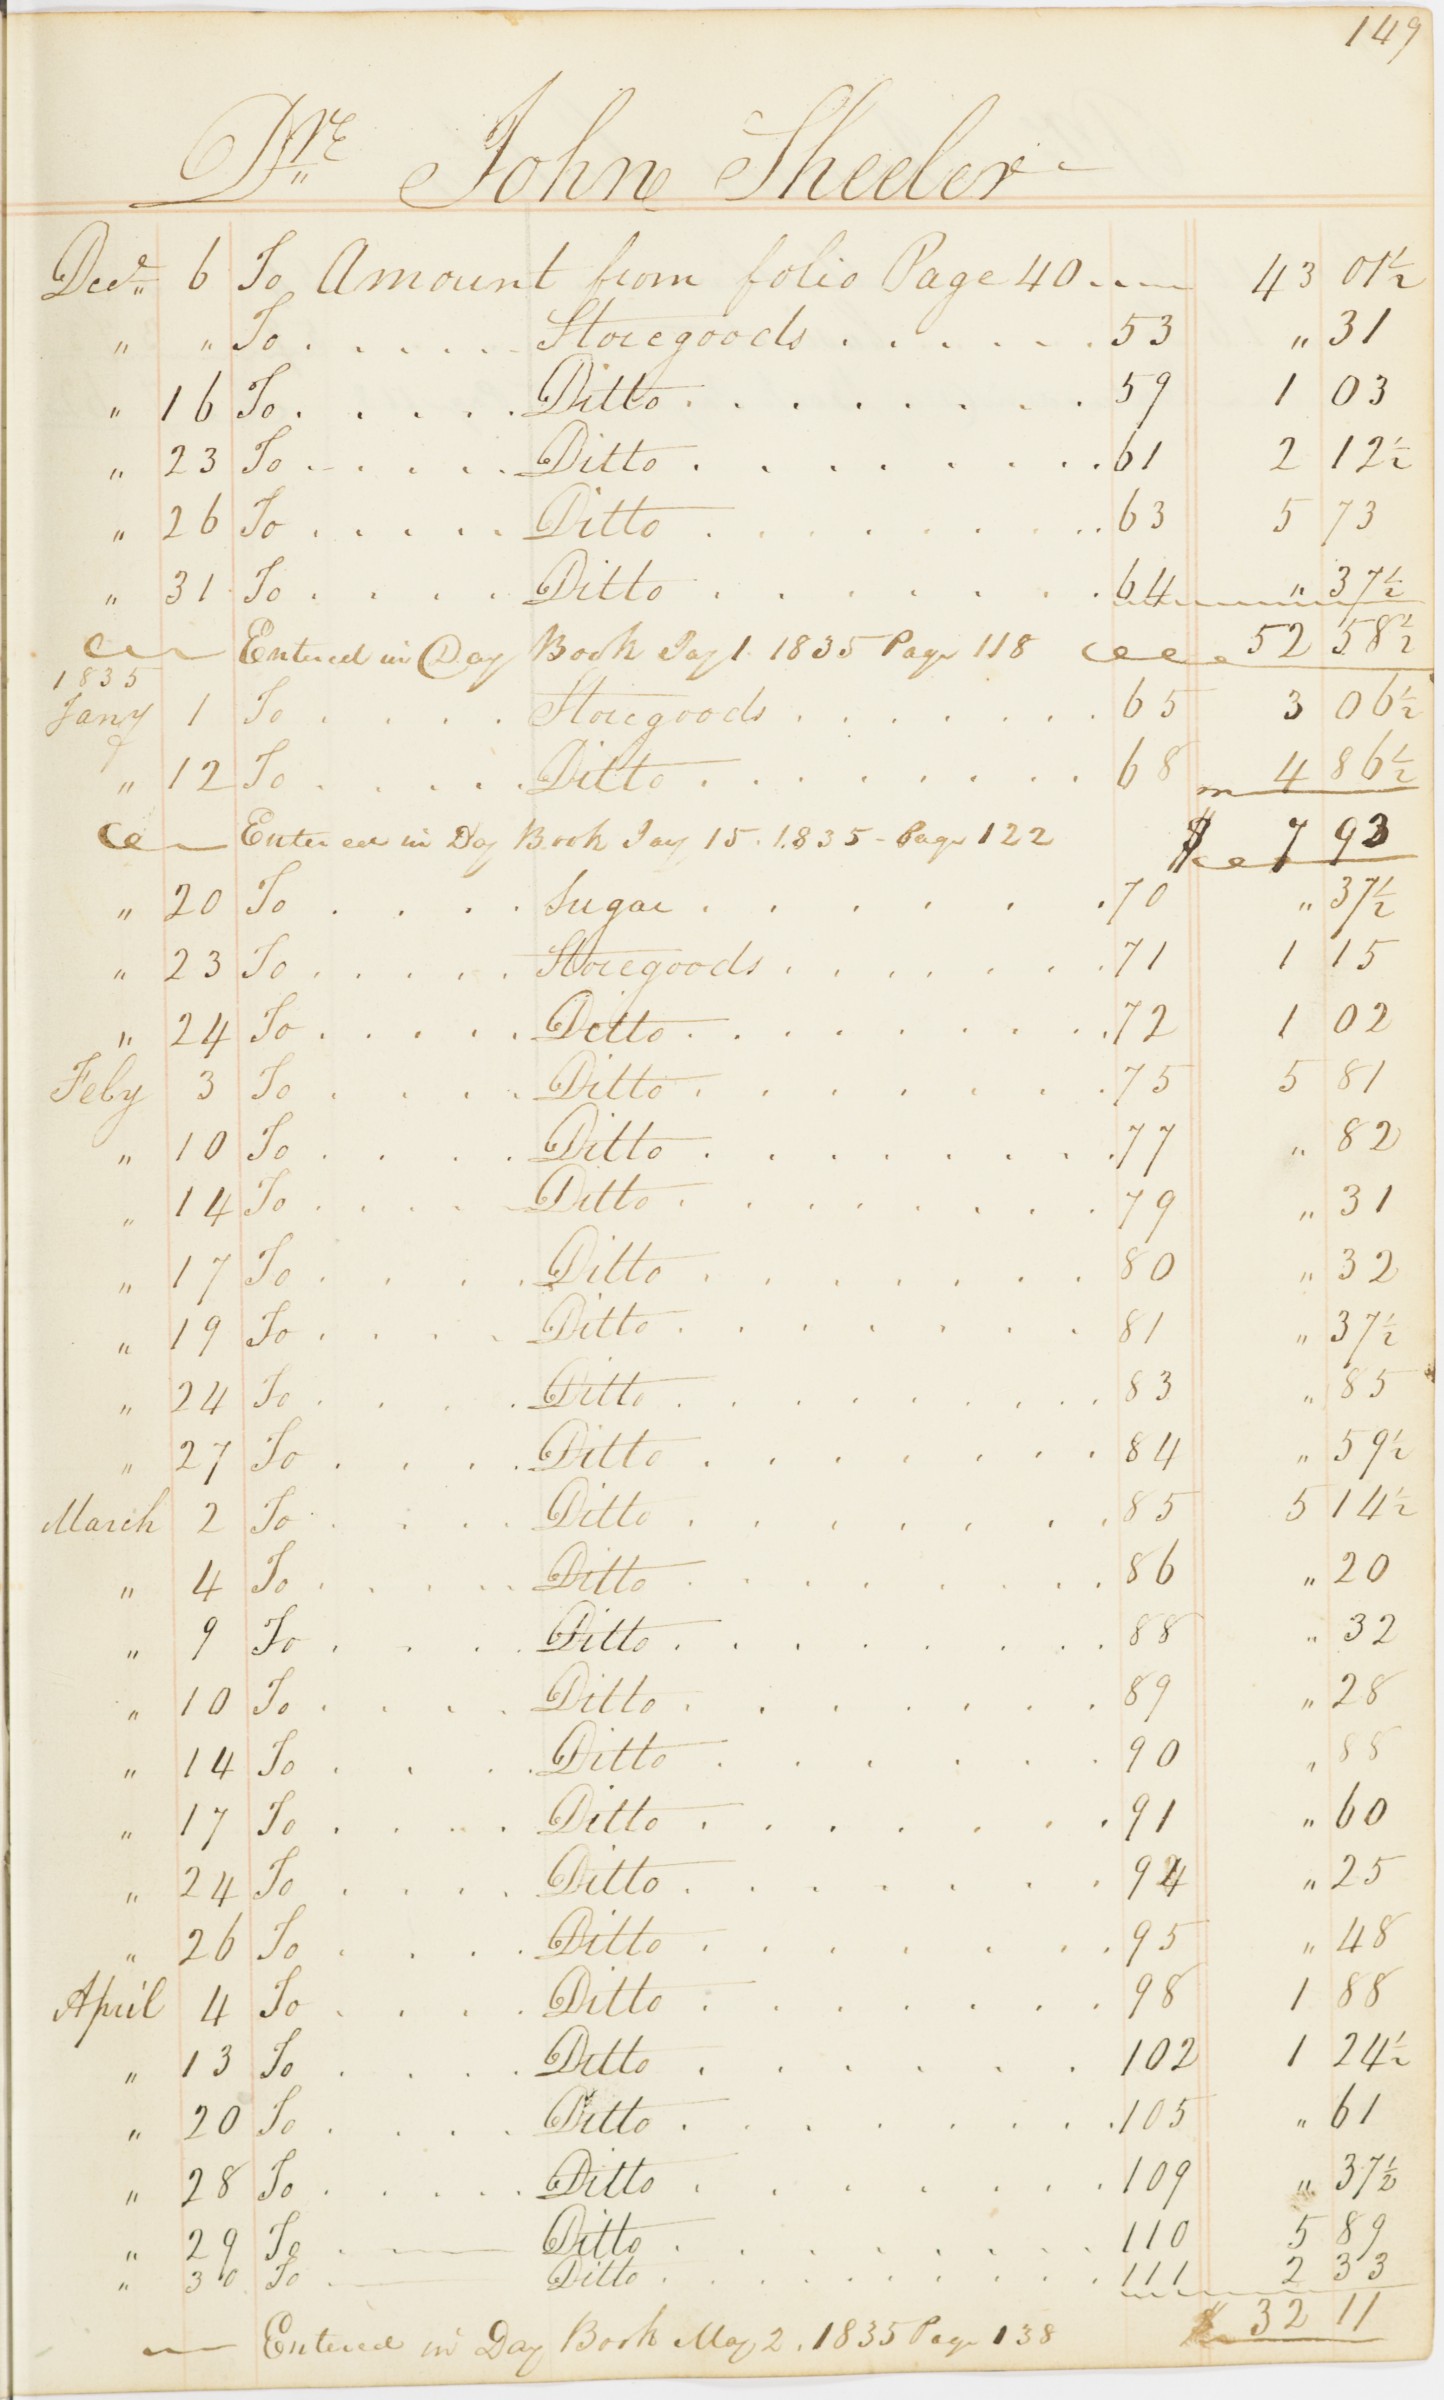 149
Dr. John Sheeler
Decr 6 To Amount from folio Page 40 43 01½
" " To Storegoods 53 " 31
" 16 To Ditto 59 1 03
" 23 To Ditto 61 2 12½
" 26 To Ditto 63 5 73
" 31 To Ditto 64 " 37½
Entered in Day Book Jay 1. 1835 Page 118 52 58½
1835
Jany 1 To Storegoods 65 3 06½
" 12 To Ditto 68 4 86½
Entered in Day Book Jay 15. 1835 - Page 122 $ 7 93
" 20 To Sugar 70 " 37½
" 23 To Storegoods 71 1 15
" 24 To Ditto 72 1 02
Feby 3 To Ditto 75 5 81
" 10 To Ditto 77 " 82
" 14 To Ditto 79 " 31
" 17 To Ditto 80 " 32
" 19 To Ditto 81 " 37½
" 24 To Ditto 83 " 85
" 27 To Ditto 84 " 59½
March 2 To Ditto 85 5 14½
" 4 To Ditto 86 " 20
" 9 To Ditto 88 " 32
" 10 To Ditto 89 " 28
" 14 To Ditto 90 " 88
" 17 To Ditto 91 " 60
" 24 To Ditto 94 " 25
" 26 To Ditto 95 " 48
April 4 To Ditto 98 1 88
" 13 To Ditto 102 1 24½
" 20 To Ditto 105 " 61
" 28 To Ditto 109 " 37½
" 29 To Ditto 110 5 89
" 30 To Ditto 111 2 33
Entered in Day Book May 2. 1835 Page 138 $ 32 11